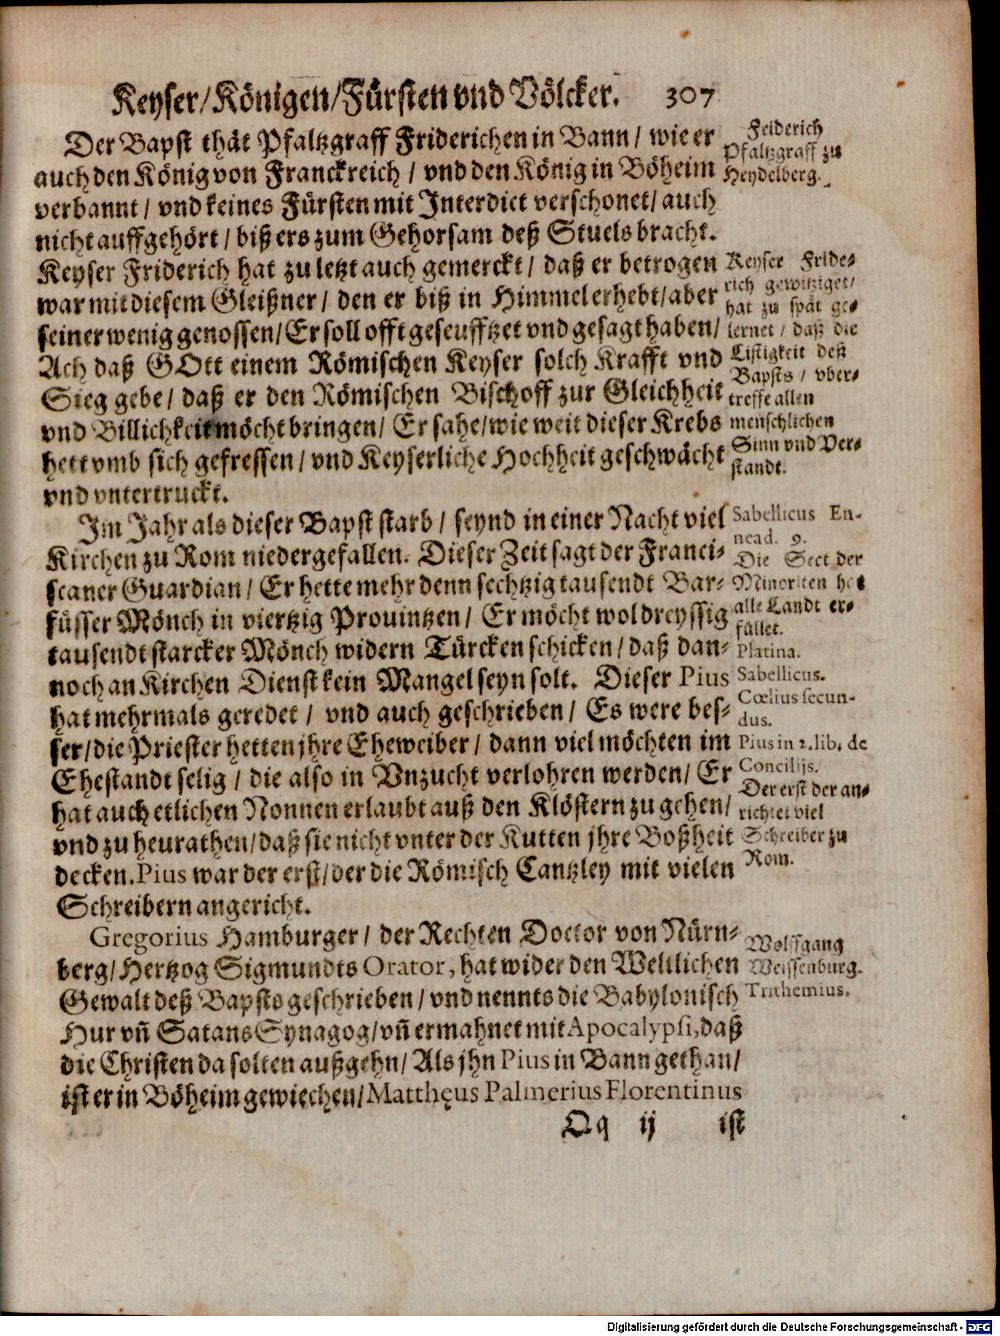 Keyser/Königen/Fürsten vnd Völcker. 307
Der Bapst thät Pfaltzgraff Friderichen in Bann/ wie er
auch den König von Franckreich / vnd den König in Böheim
verbannt / vnd keines Fürsten mit Interdict verschonet/ auch
nicht auffgehört / biß ers zum Gehorsam deß Stuels bracht.
Keyser Friderich hat zu letzt auch gemerckt / daß er betrogen
war mit diesem Gleißner / den er biß in Himmel erhebt/aber
seiner wenig genossen/Er soll offt geseufftzet vnd gesagt haben/
Ach daß GOtt einem Römischen Keyser solch Krafft vnd
Sieg gebe / daß er den Römischen Bischoff zur Gleichheit
vnd Billichkeit möcht bringen/ Er sahe/wie weit dieser Krebs
hett vmb sich gefressen / vnd Keyserliche Hochheit geschwächt
vnd vntertruckt.
Im Jahr als dieser Bapst starb / seynd in einer Nacht viel
Kirchen zu Rom niedergefallen. Dieser Zeit sagt der Franci-
scaner Guardian / Er hette mehr denn sechtzig tausendt Bar-
füsser Mönch in viertzig Prouintzen / Er möcht wol dreyssig
tausendt starcker Mönch widern Türcken schicken / daß dan-
noch an Kirchen Dienst kein Mangel seyn solt. Dieser Pius
hat mehrmals geredet / vnd auch geschrieben / Es were bes-
ser/die Priester hetten jhre Eheweiber / dann viel möchten im
Ehestandt selig / die also in Vnzucht verlohren werden/ Er
hat auch etlichen Nonnen erlaubt auß den Klöstern zu gehen/
vnd zu heurathen/daß sie nicht vnter der Kutten jhre Boßheit
decken. Pius war der erst/der die Römisch Cantzley mit vielen
Schreibern angericht.
Gregorius Hamburger / der Rechten Doctor von Nürn-
berg/Hertzog Sigmundts Orator, hat wider den Weltlichen
Gewalt deß Bapsts geschrieben / vnd nennts die Babylonisch
Hur vñ Satans Synagog/vñ ermahnet mit Apocalypsi, daß
die Christen da solten außgehn/ Als jhn Pius in Bann gethan/
ist er in Böheim gewiechen/Matthęus Palmerius Florentinus
Qq ij ist
Friderich
Pfaltzgraff zu
Heydelberg.
Keyser Fride-
rich gewitziget/
hat zu spät ge-
lernet / daß die
Listigkeit deß
Bapsts / vber-
treffe allen
menschlichen
Sinn vnd Ver-
standt.
Sabellicus En-
nead. 9.
Die Sect der
Minoriten het
alle Landt er-
füllet.
Platina.
Sabellicus.
Cœlius secun-
dus.
Pius in 2. lib. de
Concilijs.
Der erst der an-
richtet viel
Schreiber zu
Rom.
Wolffgang
Weissenburg.
Trithemius.
Digitalisierung gefördert durch die Deutsche Forschungsgemeinschaft - DFG